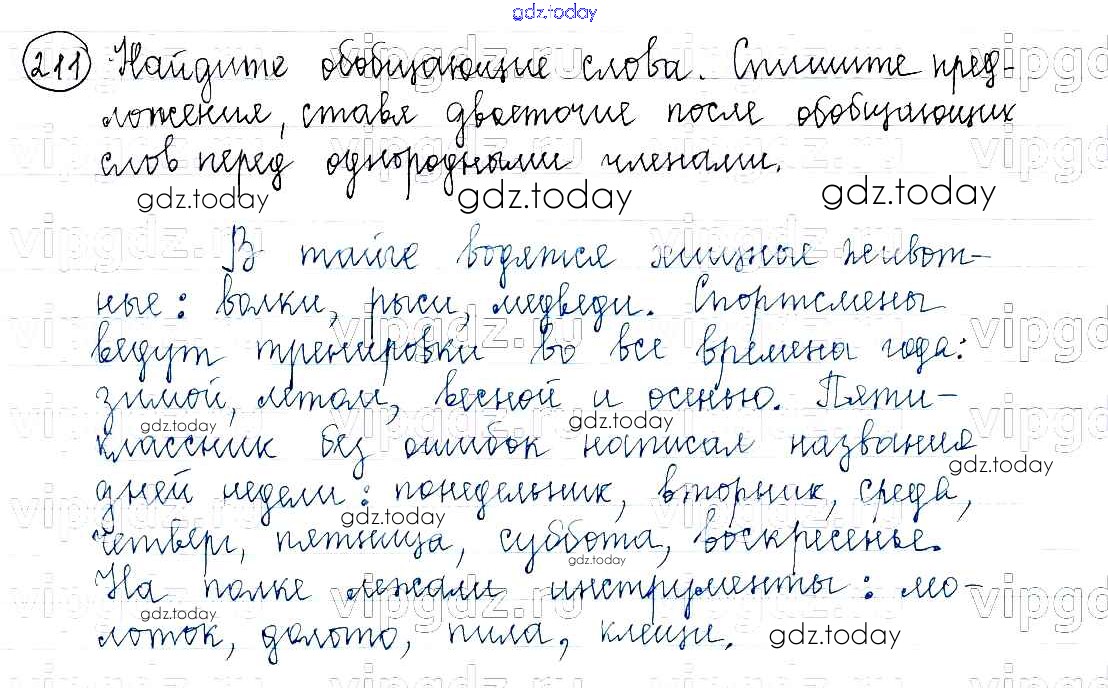 gdz.today
211 Найдите обобщающие слова. Спишите пред-
ложения, ставя двоеточие после обобщающих
слов перед однородными членами.
gdz.today gdz.today gdz.today
В тайге водятся хищные живот-
ные: волки, рыси, медведи. Спортсмены
ведут тренировки во все времена года:
зимой, летом, весной и осенью. Пяти-
gdz.today gdz.today
классник без ошибок написал название
gdz.today
дней недели: понедельник, вторник, среда,
gdz.today
четверг, пятница, суббота, воскресенье.
gdz.today
На полке лежали инструменты: мо-
gdz.today
лоток, долото, пила, клещи.
gdz.today